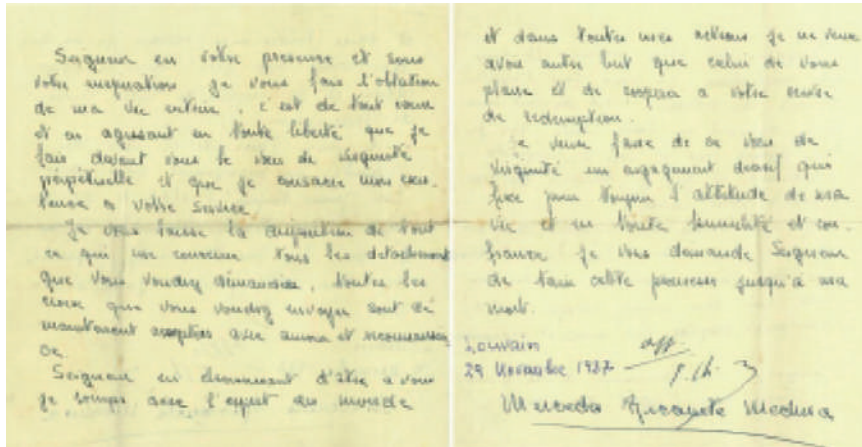 Seigneur en votre presence et sous
votre inspiration je vous fais l'oblation
de ma vie entiere, c'est de tout coeur
et en agissant en toute liberté que je
fais devant vous le voeu de virginité
perpétuelle et que je consacre mon exis-
tence a votre service
Je vous laisse la disposition de tout
ce qui me concerne tous les detachement
que vous voudrez demander, toutes les
croix que vous voudrez envoyer sont dé
maintenant acceptées avec amour et reconnaissan
ce.
Seigneur en d'être a vous
je romps avec l'esprit du monde
et dans toutes mes actions je ne veux
avoir autre but que celui de vous
plaire et de cooperer a votre oeuvre
de redemption.
Je veux faire de ce voeu de
virginité un engagement decisif qui
fixe pour toujours l'attitude de ma
vie et en toute humilité et con-
fiance je vous demande Seigneur
de tenir cette promesse jusqu'à ma
mort.
Louvain
29 Novembre 1937
Mercedes Medina